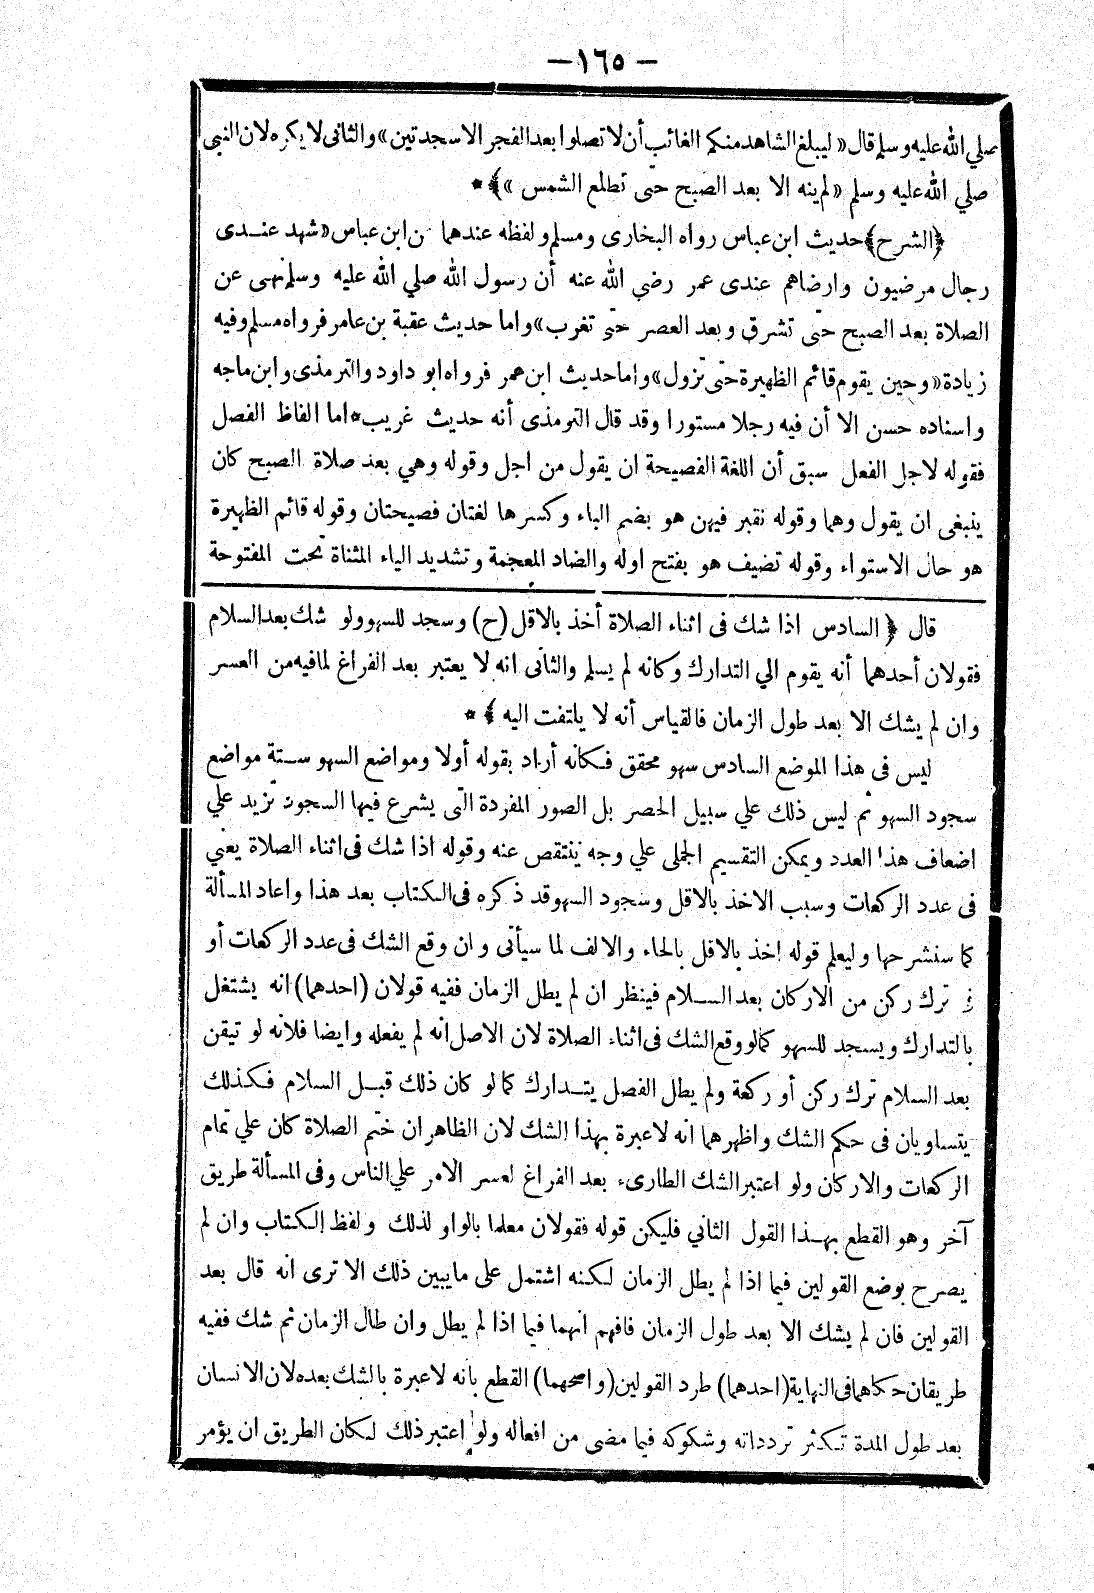 — ١٦٥ —
صلي الله عليه وسلم قال « ليبلغ الشاهد منكم الغائب أن لا تصلوا بعد الفجر الا سجدتين » والثانى لا يكره لان النبى
صلي الله عليه وسلم « لم ينه الا بعد الصبح حتى تطلع الشمس » ﴾ *
﴿ الشرح ﴾ حديث ابن عباس رواه البخارى ومسلم ولفظه عندهما ن ابن عباس « شهد عندى
رجال مرضيون وارضاهم عندى عمر رضي الله عنه أن رسول الله صلي الله عليه وسلم نهى عن
الصلاة بعد الصبح حتى تشرق وبعد العصر حتى تغرب » واما حديث عقبة بن عامر فرواه مسلم وفيه
زيادة « وحين يقوم قائم الظهيرة حتى تزول » واما حديث ابن عمر فرواه ابو داود والترمذى وابن ماجه
واسناده حسن الا أن فيه رجلا مستورا وقد قال الترمذى أنه حديث غريب * اما الفاظ الفصل
فقوله لاجل الفعل سبق أن اللغة الفصيحة ان يقول من اجل وقوله وهي بعد صلاة الصبح كان
ينبغى ان يقول وهما وقوله نقبر فيهن هو بضم الباء وكسرها لغتان فصيحتان وقوله قائم الظهيرة
هو حال الاستواء وقوله تضيف هو بفتح اوله والضاد المعجمة وتشديد الياء المثناة تحت المفتوحة
قال ﴿ السادس اذا شك فى اثناء الصلاة أخذ بالاقل (ح) وسجد للسهو ولو شك بعد السلام
فقولان أحدهما أنه يقوم الي التدارك وكانه لم يسلم والثانى انه لا يعتبر بعد الفراغ لما فيه من العسر
وان لم يشك الا بعد طول الزمان فالقياس أنه لا يلتفت اليه ﴾ *
ليس فى هذا الموضع السادس سهو محقق فكانه أراد بقوله أولا ومواضع السهو ستة مواضع
سجود السهو ثم ليس ذلك علي سبيل الحصر بل الصور المفردة التى يشرع فيها السجود تزيد علي
اضعاف هذا العدد ويمكن التقسيم الجملى علي وجه ينتقص عنه وقوله اذا شك فى اثناء الصلاة يعني
فى عدد الركعات وسبب الاخذ بالاقل وسجود السهو قد ذكره فى الكتاب بعد هذا واعاد المسألة
كما سنشرحها وليعلم قوله اخذ بالاقل بالحاء والالف لما سيأتى وان وقع الشك فى عدد الركعات أو
في ترك ركن من الاركان بعد السلام فينظر ان لم يطل الزمان ففيه قولان (احدهما) انه يشتغل
بالتدارك ويسجد للسهو كما لو وقع الشك فى اثناء الصلاة لان الاصل انه لم يفعله وايضا فلانه لو تيقن
بعد السلام ترك ركن أو ركعة ولم يطل الفصل يتدارك كما لو كان ذلك قبل السلام فكذلك
يتساويان فى حكم الشك واظهرهما انه لا عبرة بهذا الشك لان الظاهر ان ختم الصلاة كان علي تمام
الركعات والاركان ولو اعتبر الشك الطارىء بعد الفراغ لعسر الامر علي الناس وفى المسألة طريق
آخر وهو القطع بهذا القول الثاني فليكن قوله فقولان معلما بالواو لذلك ولفظ الكتاب وان لم
يصرح بوضع القولين فيما اذا لم يطل الزمان لكنه اشتمل على ما يبين ذلك الا ترى انه قال بعد
القولين فان لم يشك الا بعد طول الزمان فافهم انهما فيما اذا لم يطل وان طال الزمان ثم شك ففيه
طريقان حكاهما فى النهاية (احدهما) طرد القولين (واصحهما) القطع بانه لا عبرة بالشك بعده لان الانسان
بعد طول المدة تكثر تردداته وشكوكه فيما مضى من افعاله ولو اعتبر ذلك لكان الطريق ان يؤمر